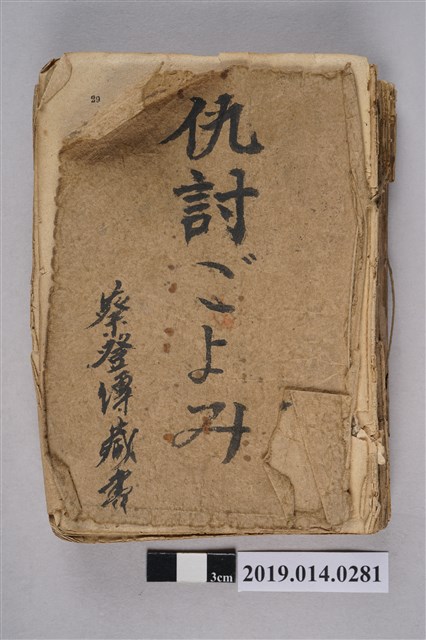 29
仇討ごよみ
蔡登傳藏書
3cm
2019.014.0281